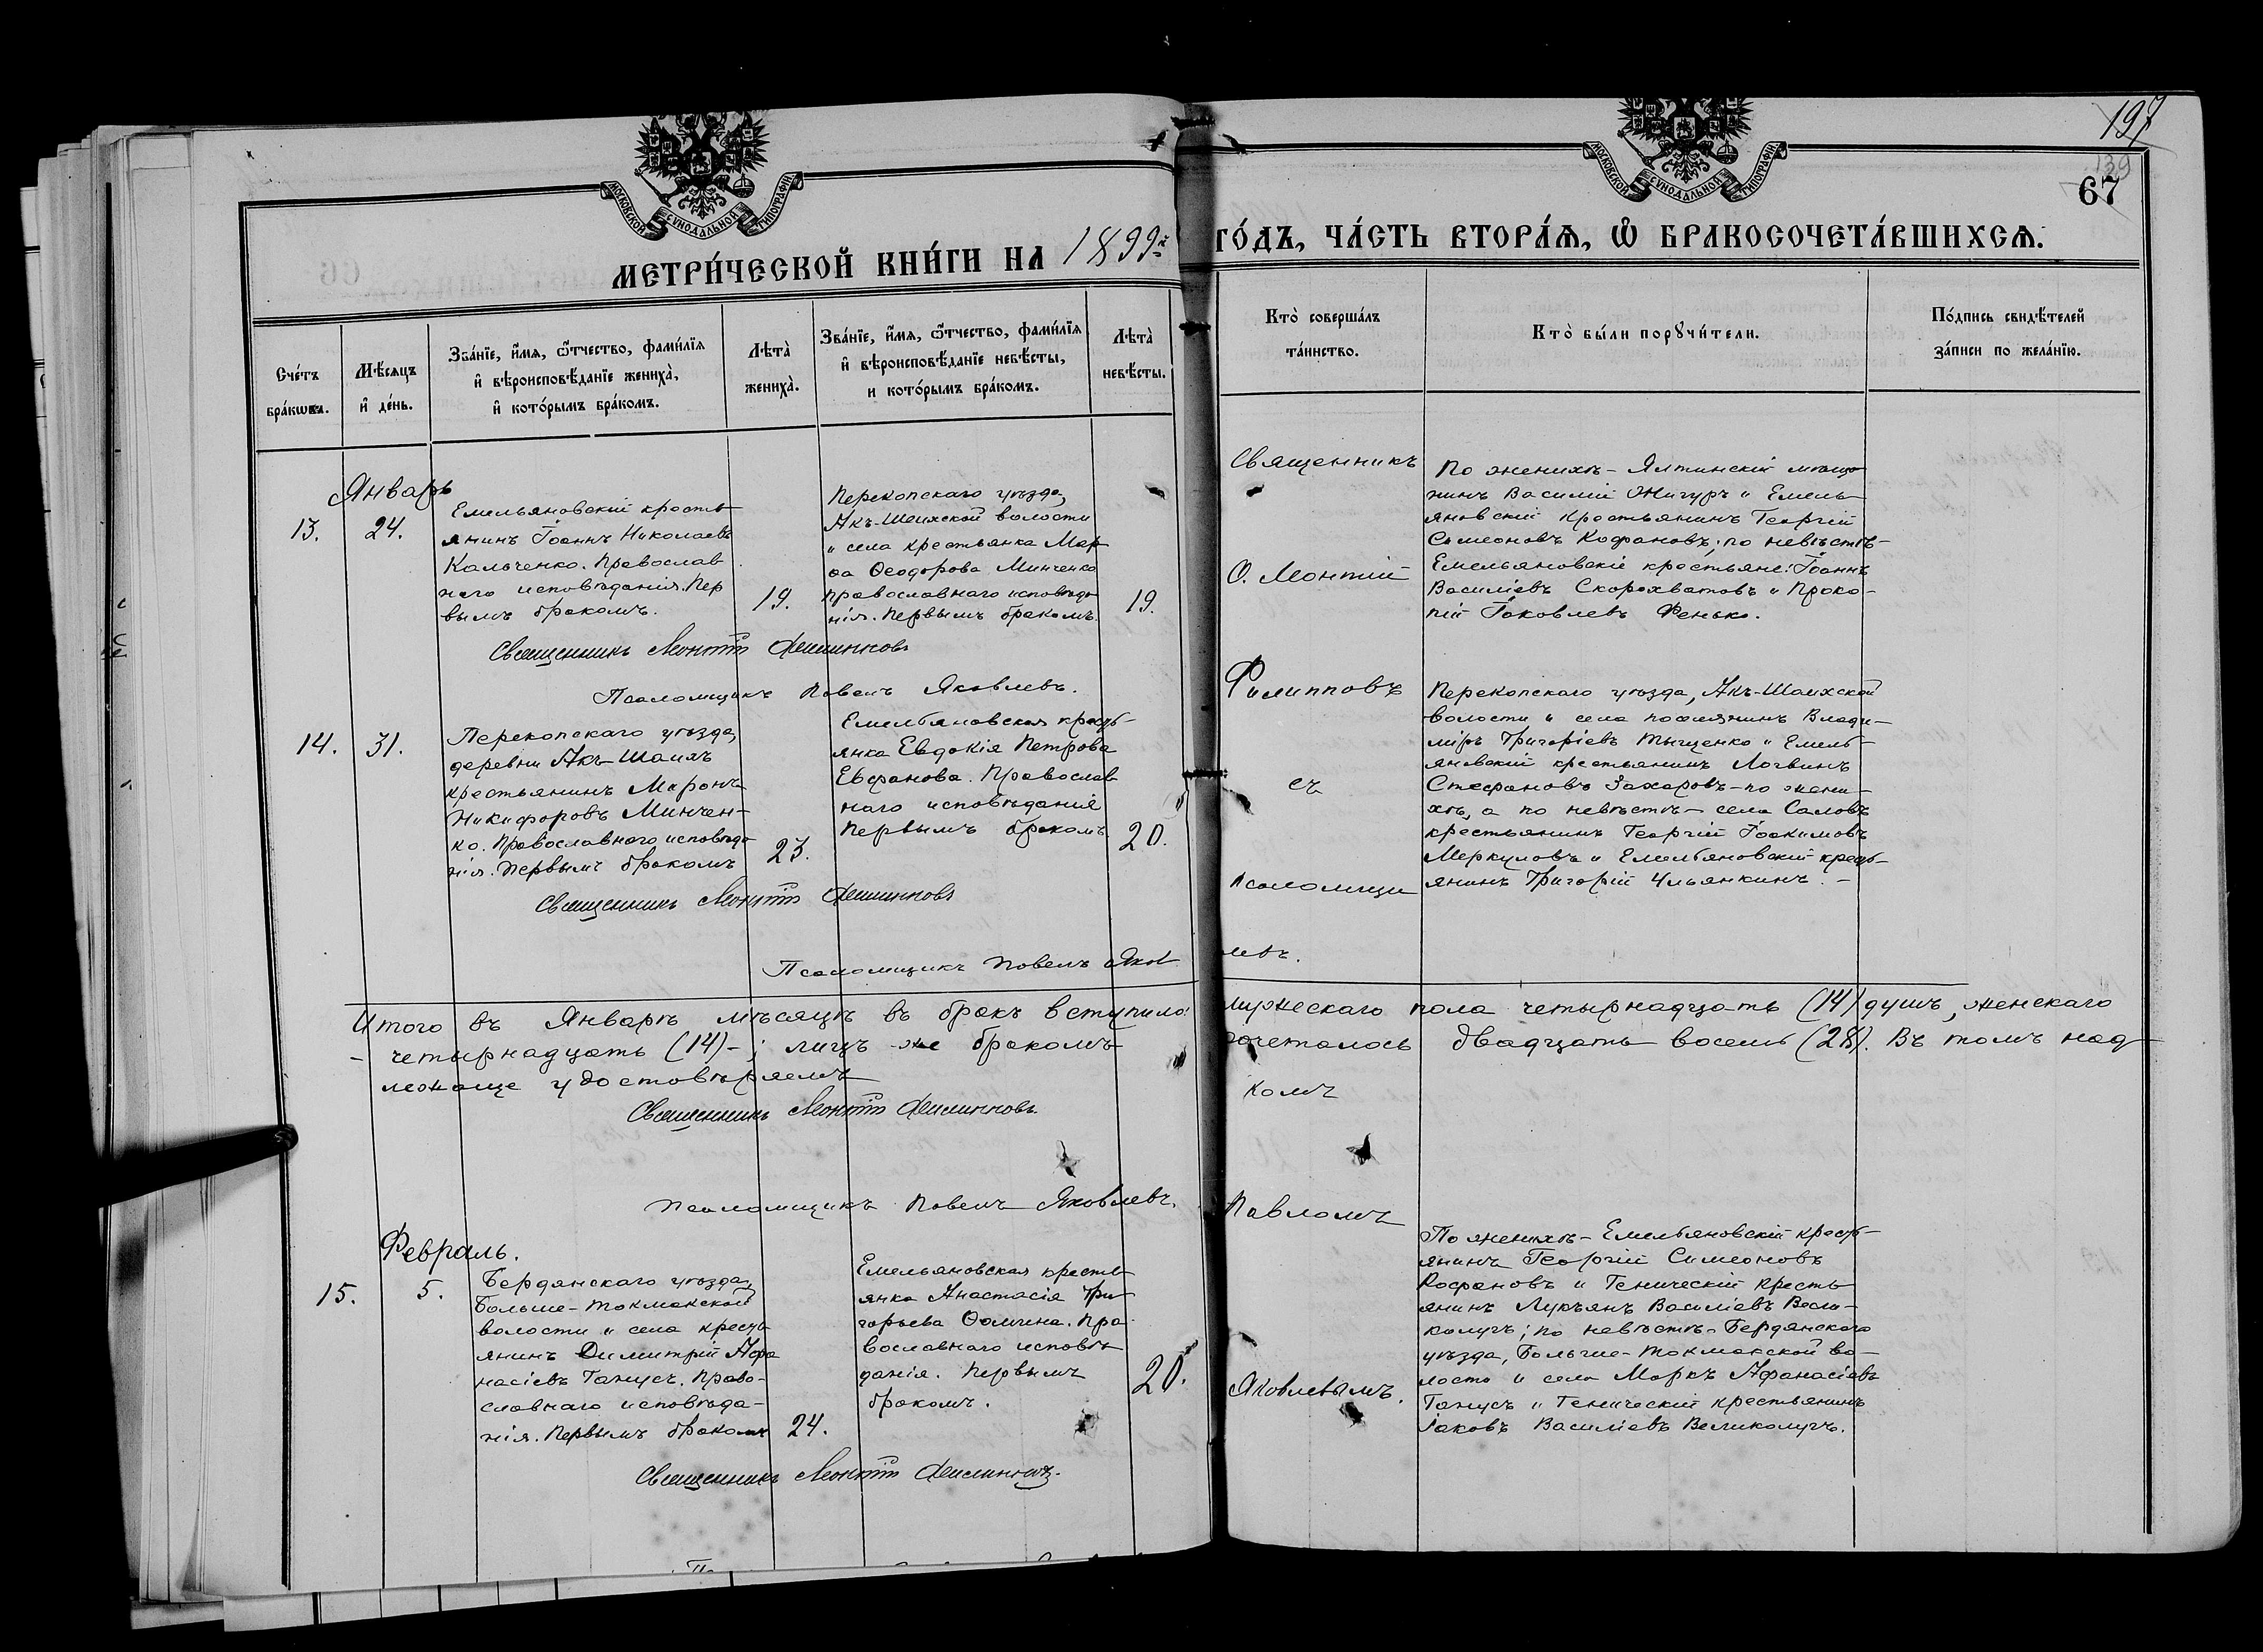 197
139
67
МОСКОВСКОЙ СѴНОДАЛЬНОЙ ТИПОГРАФІИ
МОСКОВСКОЙ СѴНОДАЛЬНОЙ ТИПОГРАФІИ
МЕТРИ́ЧЕСКОЙ КНИ́ГИ НА 1899й
ГО́ДЪ, ЧА́СТЬ ВТОРА́Ѧ, Ѽ БРАКОСОЧЕТА́ВШИХСѦ.
Сче́тъ
бра́кѡвъ.
Мѣ́сѧцъ
и҆ де́нь.
Зва́нїе, и҆́мѧ, ѻ҆́тчество, фами́лїѧ
и҆ вѣроисповѣ́данїе жениха̀,
и҆ кото́рымъ бра́комъ.
Лѣта̀
жениха̀.
Зва́нїе, и҆́мѧ, ѻ҆́тчество, фами́лїѧ
и҆ вѣроисповѣ́данїе невѣ́сты,
и кото́рымъ бра́комъ.
Лѣта̀
невѣ́сты.
Кто̀ соверша́лъ
та́инство.
Кто̀ бы́ли порꙋчи́тели.
По́дпись свидѣ́телей
за́писи по жела́нїю.
Январь
13.
24.
Емельяновскій кресть
янинъ Іоаннъ Николаевъ
Кальченко. Православ
наго исповѣданія. Пер
вымъ бракомъ.
19.
Перекопскаго уѣзда,
Акъ-Шеихской волости
и села крестьянка Мар
ѳа Ѳеодорова Минченко
православнаго исповѣда
нія. Первымъ бракомъ.
19.
Священникъ
О. Леонтій
По женихѣ - Ялтинскій мѣща
нинъ Василій Жигуръ и Емель
яновскій крестьянинъ Георгій
Симеоновъ Кофановъ; по невѣстѣ -
Емельяновскіе крестьяне: Іоаннъ
Василіевъ Скорохватовъ и Проко-
пій Іаковлевъ Фенько.
Священникъ Леонтій Филипповъ
Псаломщикъ Павелъ Яковлевъ.
14.
31.
Перекопскаго уѣзда,
деревни Акъ-Шаихъ
крестьянинъ Миронъ
Никифоровъ Минчен-
ко. Православнаго исповѣда
нія. Первымъ бракомъ
23.
Емельяновская кресть-
янка Евдокія Петрова
Евфанова. Православ
наго исповѣданія
Первымъ бракомъ
20.
Филипповъ
съ
псаломщи
Перекопскаго уѣзда, Акъ-Шаихской
волости и села поселянинъ Влади-
міръ Григоріевъ Тыщенко и Емель-
яновскій крестьянинъ Логвинъ
Стефановъ Захаровъ - по жени-
хѣ, а по невѣстѣ - села Саловъ
крестьянинъ Георгій Іоакимовъ
Меркуловъ и Емельяновскій кресть-
янинъ Григорій Ульянкинъ. -
Священникъ Леонтій Филипповъ
Псаломщикъ Павелъ Яковлевъ.
Итого въ Январѣ мѣсяцѣ въ бракъ вступило: мужескаго пола четырнадцать (14) душъ, женскаго
- четырнадцать (14) - ; лицъ же бракомъ сочеталось двадцать восемь (28). Въ томъ над
лежаще удостовѣряемъ
комъ
Священникъ Леонтій Филипповъ.
Псаломщикъ Павелъ Яковлевъ.
Павломъ
Февраль.
15.
5.
Бердянскаго уѣзда,
Больше-Токмакской
волости и села кресть
янинъ Димитрій Афа
насіевъ Танусъ. Право-
славнаго исповѣда-
нія. Первымъ бракомъ
24.
Емельяновская кресть
янка Анастасія Гри
горьева Ѳомина. Пра-
вославнаго исповѣ
данія. Первымъ
бракомъ.
20.
Яковлевымъ.
По женихѣ - Емельяновскій кресть-
янинъ Георгій Симеоновъ
Кофановъ и Геническій кресть
янинъ Лукъянъ Василіевъ Вели-
колугъ; по невѣстѣ - Бердянскаго
уѣзда, Больше-Токмакской во-
лости и села Маркъ Афанасіевъ
Танусъ и Геническій крестьянинъ
Іаковъ Василіевъ Великолугъ.
Священникъ Леонтій Филипповъ.